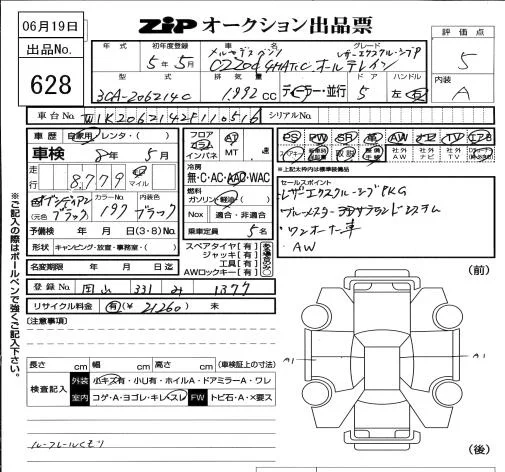 06月19日
出品No.
628
ZIP オークション出品票
評価点
5
内装
A
年式 初年度登録 車名 グレード
5年 5月 メルセデスベンツ レザーエクスクルーシブP
C220d 4MATIC オールテレイン
型式 排気量 ドア ハンドル
3CA-206214C 1,992cc ディーラー・並行 5 左・右
車台No. W1K2062142F110516 シリアルNo.
車歴 自家用・レンタ・( )
車検 8年 5月
走行 8,779 km マイル
色 オブシディアンブラック (元色 ) カラーNo. 197 内装色 ブラック
予備検 年 月 日(3・8)No.
形状 キャンピング・放置・事務室・( )
名変期限 年 月 日迄
フロア コラム インパネ AT MT 速
冷房 無・C・AC・AAC・WAC
燃料 ガソリン・軽油・( )
Nox 適合・非適合
乗車定員 5名
スペアタイヤ[有]
ジャッキ[有]
工具[有]
AWロックキー[有]
PS PW SR 革 AW ナビ TV エアB
社外AW 社外ナビ 社外TV
*上記太枠内は標準装備品
セールスポイント
・レザーエクスクルーシブPKG
・ブルメスター3Dサラウンドシステム
・ワンオーナー車
・AW
登録No. 岡山 331 み 1377
リサイクル料金 有(¥ 21260) 未
(注意事項)
長さ cm 幅 cm 高さ cm (車検証上の寸法)
検査記入 外装 小キズ有・小U有・ホイルA・ドアミラーA・ワレ
室内 コゲ・A・ヨゴレ・キレ・スレ FW トビ石・A・×要ス
ルーフレールくもり
※ご記入の際はボールペンで強くご記入下さい。
(前)
A1 A1
(後)